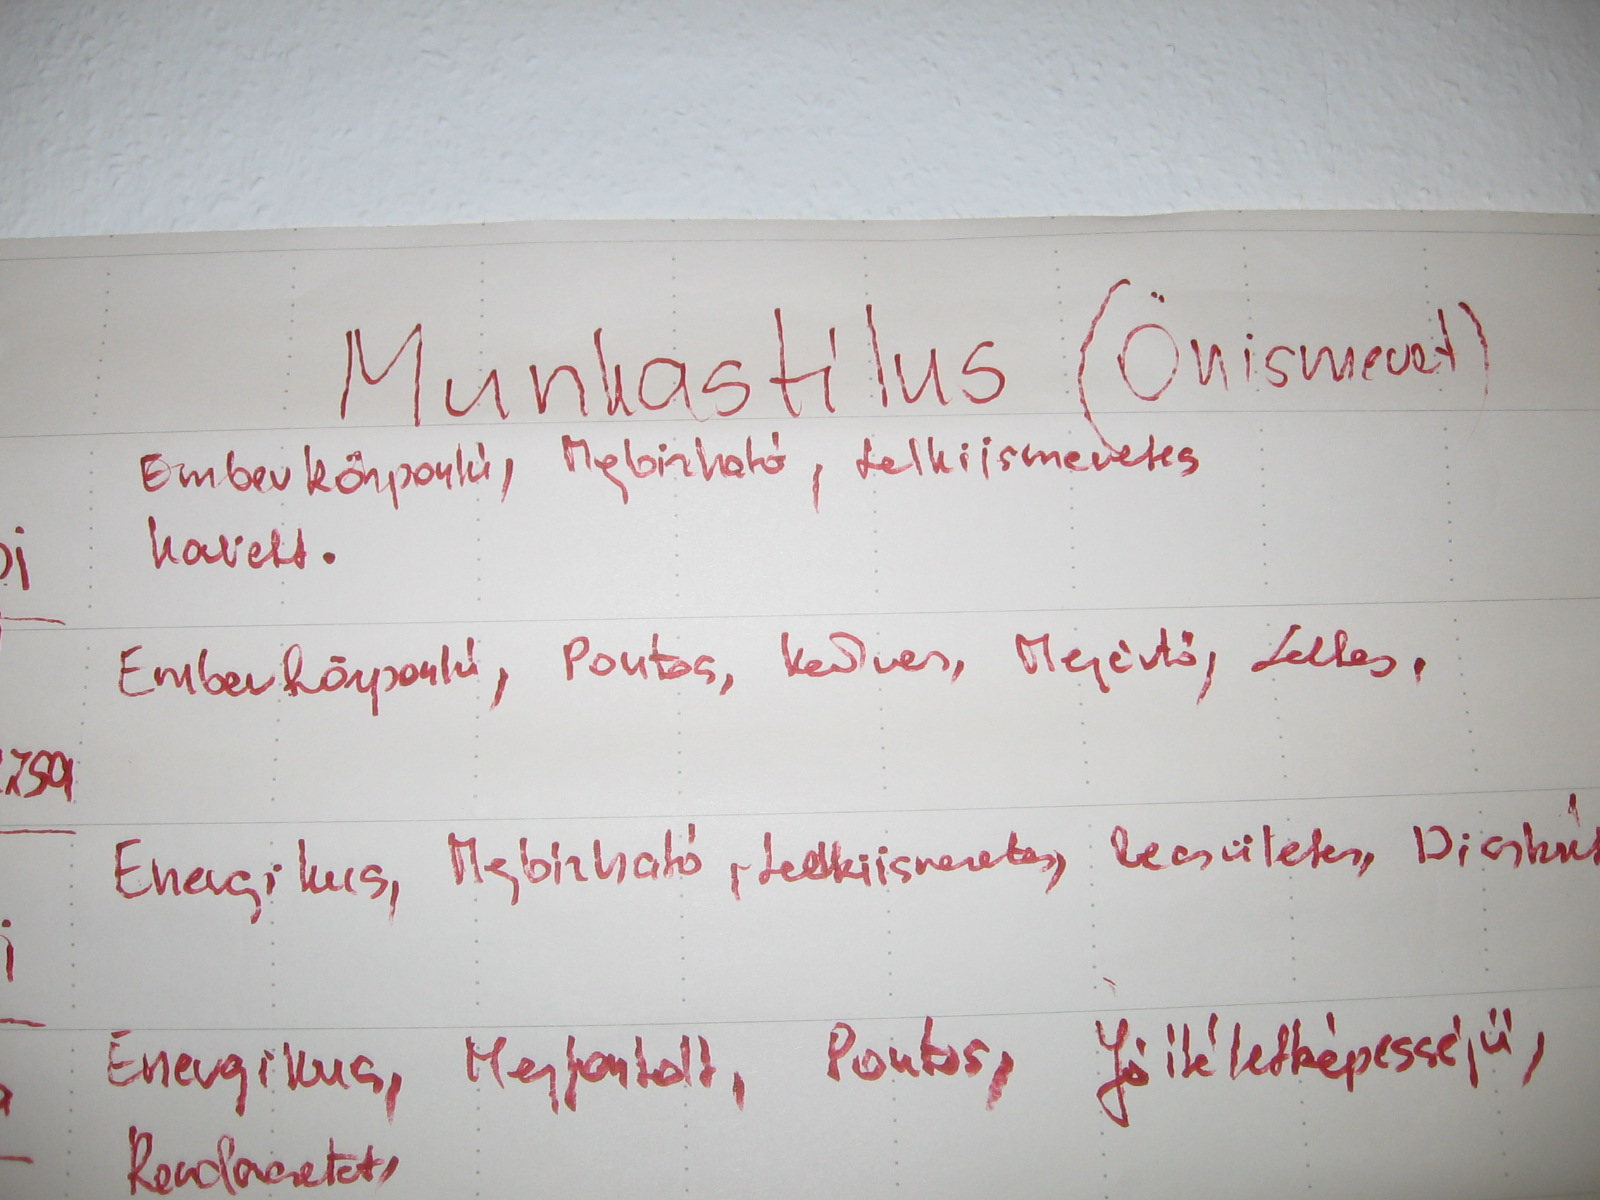 Munkastílus (Önismeret)
Emberközpontú, Megbízható, Lelkiismeretes
Pi
Emberközpontú, Pontos, Kedves, Megértő, Lelkes,
zsa
Energikus, Megbízható, Lelkiismeretes, becsületes, Diszkrét
i
Energikus, Megfontolt, Pontos, Jó ítéletképességű,
a